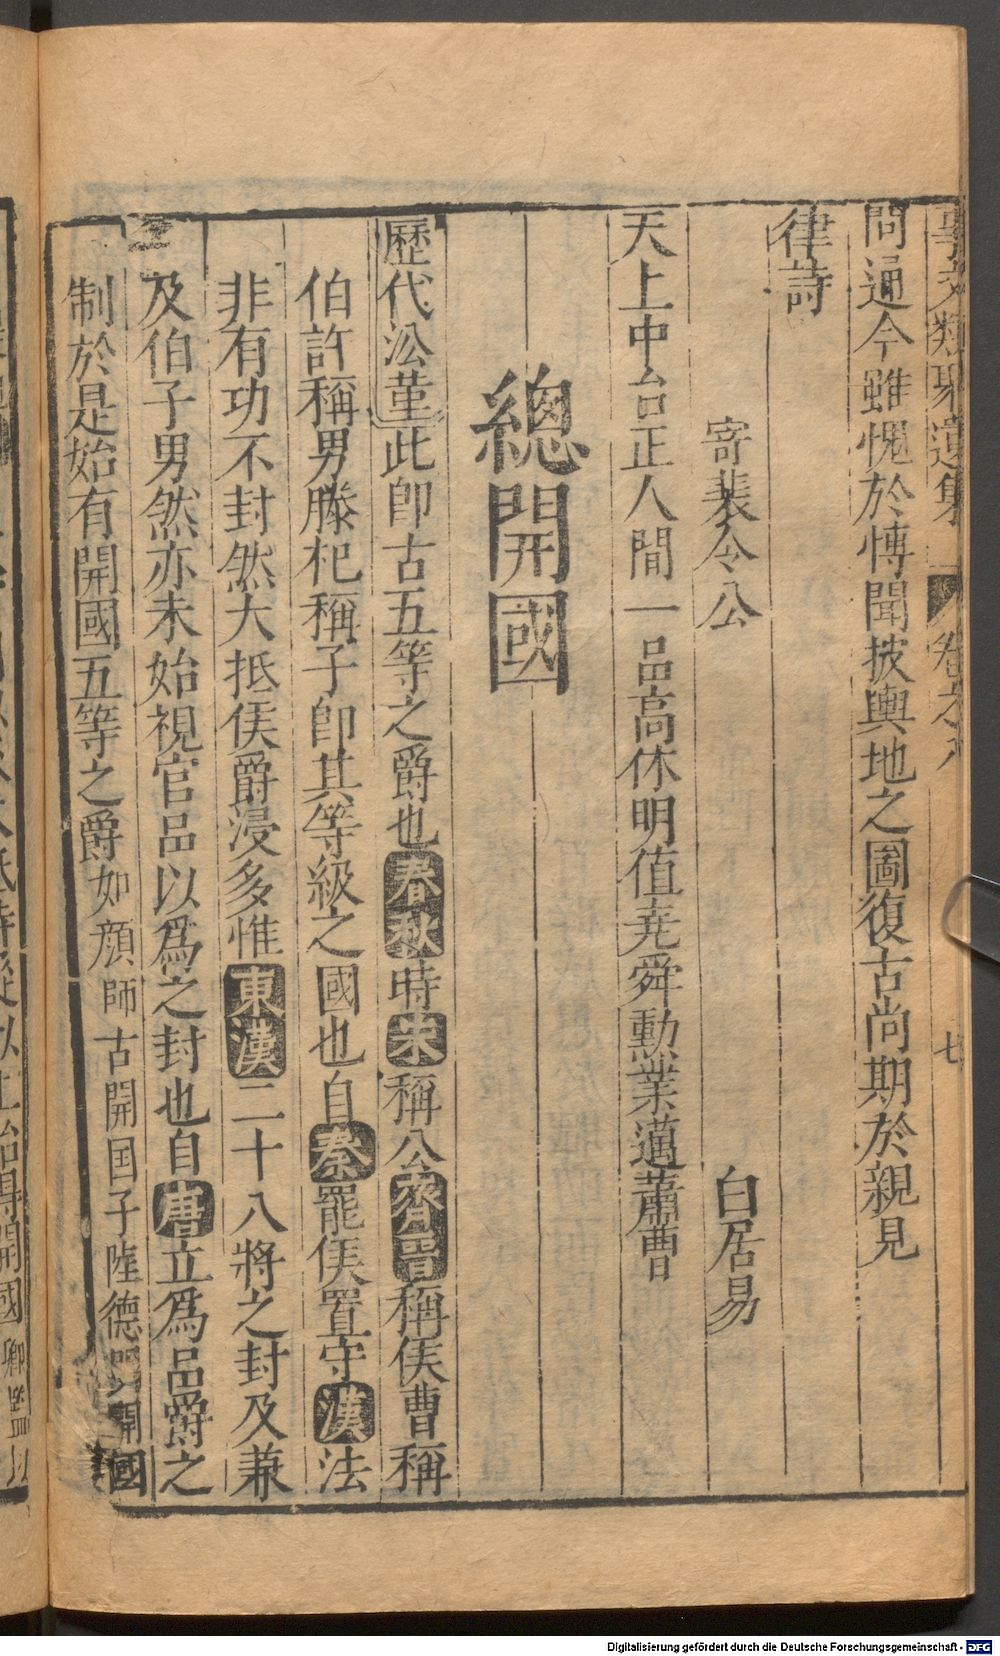 事文類聚遺集 卷之八 七
問通今雖愧於愽聞披輿地之圖復古尚期於親見
律詩
寄裴令公 白居易
天上中台正人間一品高休明值堯舜勳業邁蕭曹
總開國
歷代㳂董此即古五等之爵也春秋時宋稱公齊晋稱侯曹稱
伯許稱男滕杞稱子即其等級之國也自秦罷侯置守漢法
非有功不封然大抵侯爵浸多惟東漢二十八將之封及兼
及伯子男然亦未始視官品以爲之封也自唐立爲品爵之
制於是始有開國五等之爵如顔師古開国子陸德明開國
Digitalisierung gefördert durch die Deutsche Forschungsgemeinschaft - DFG